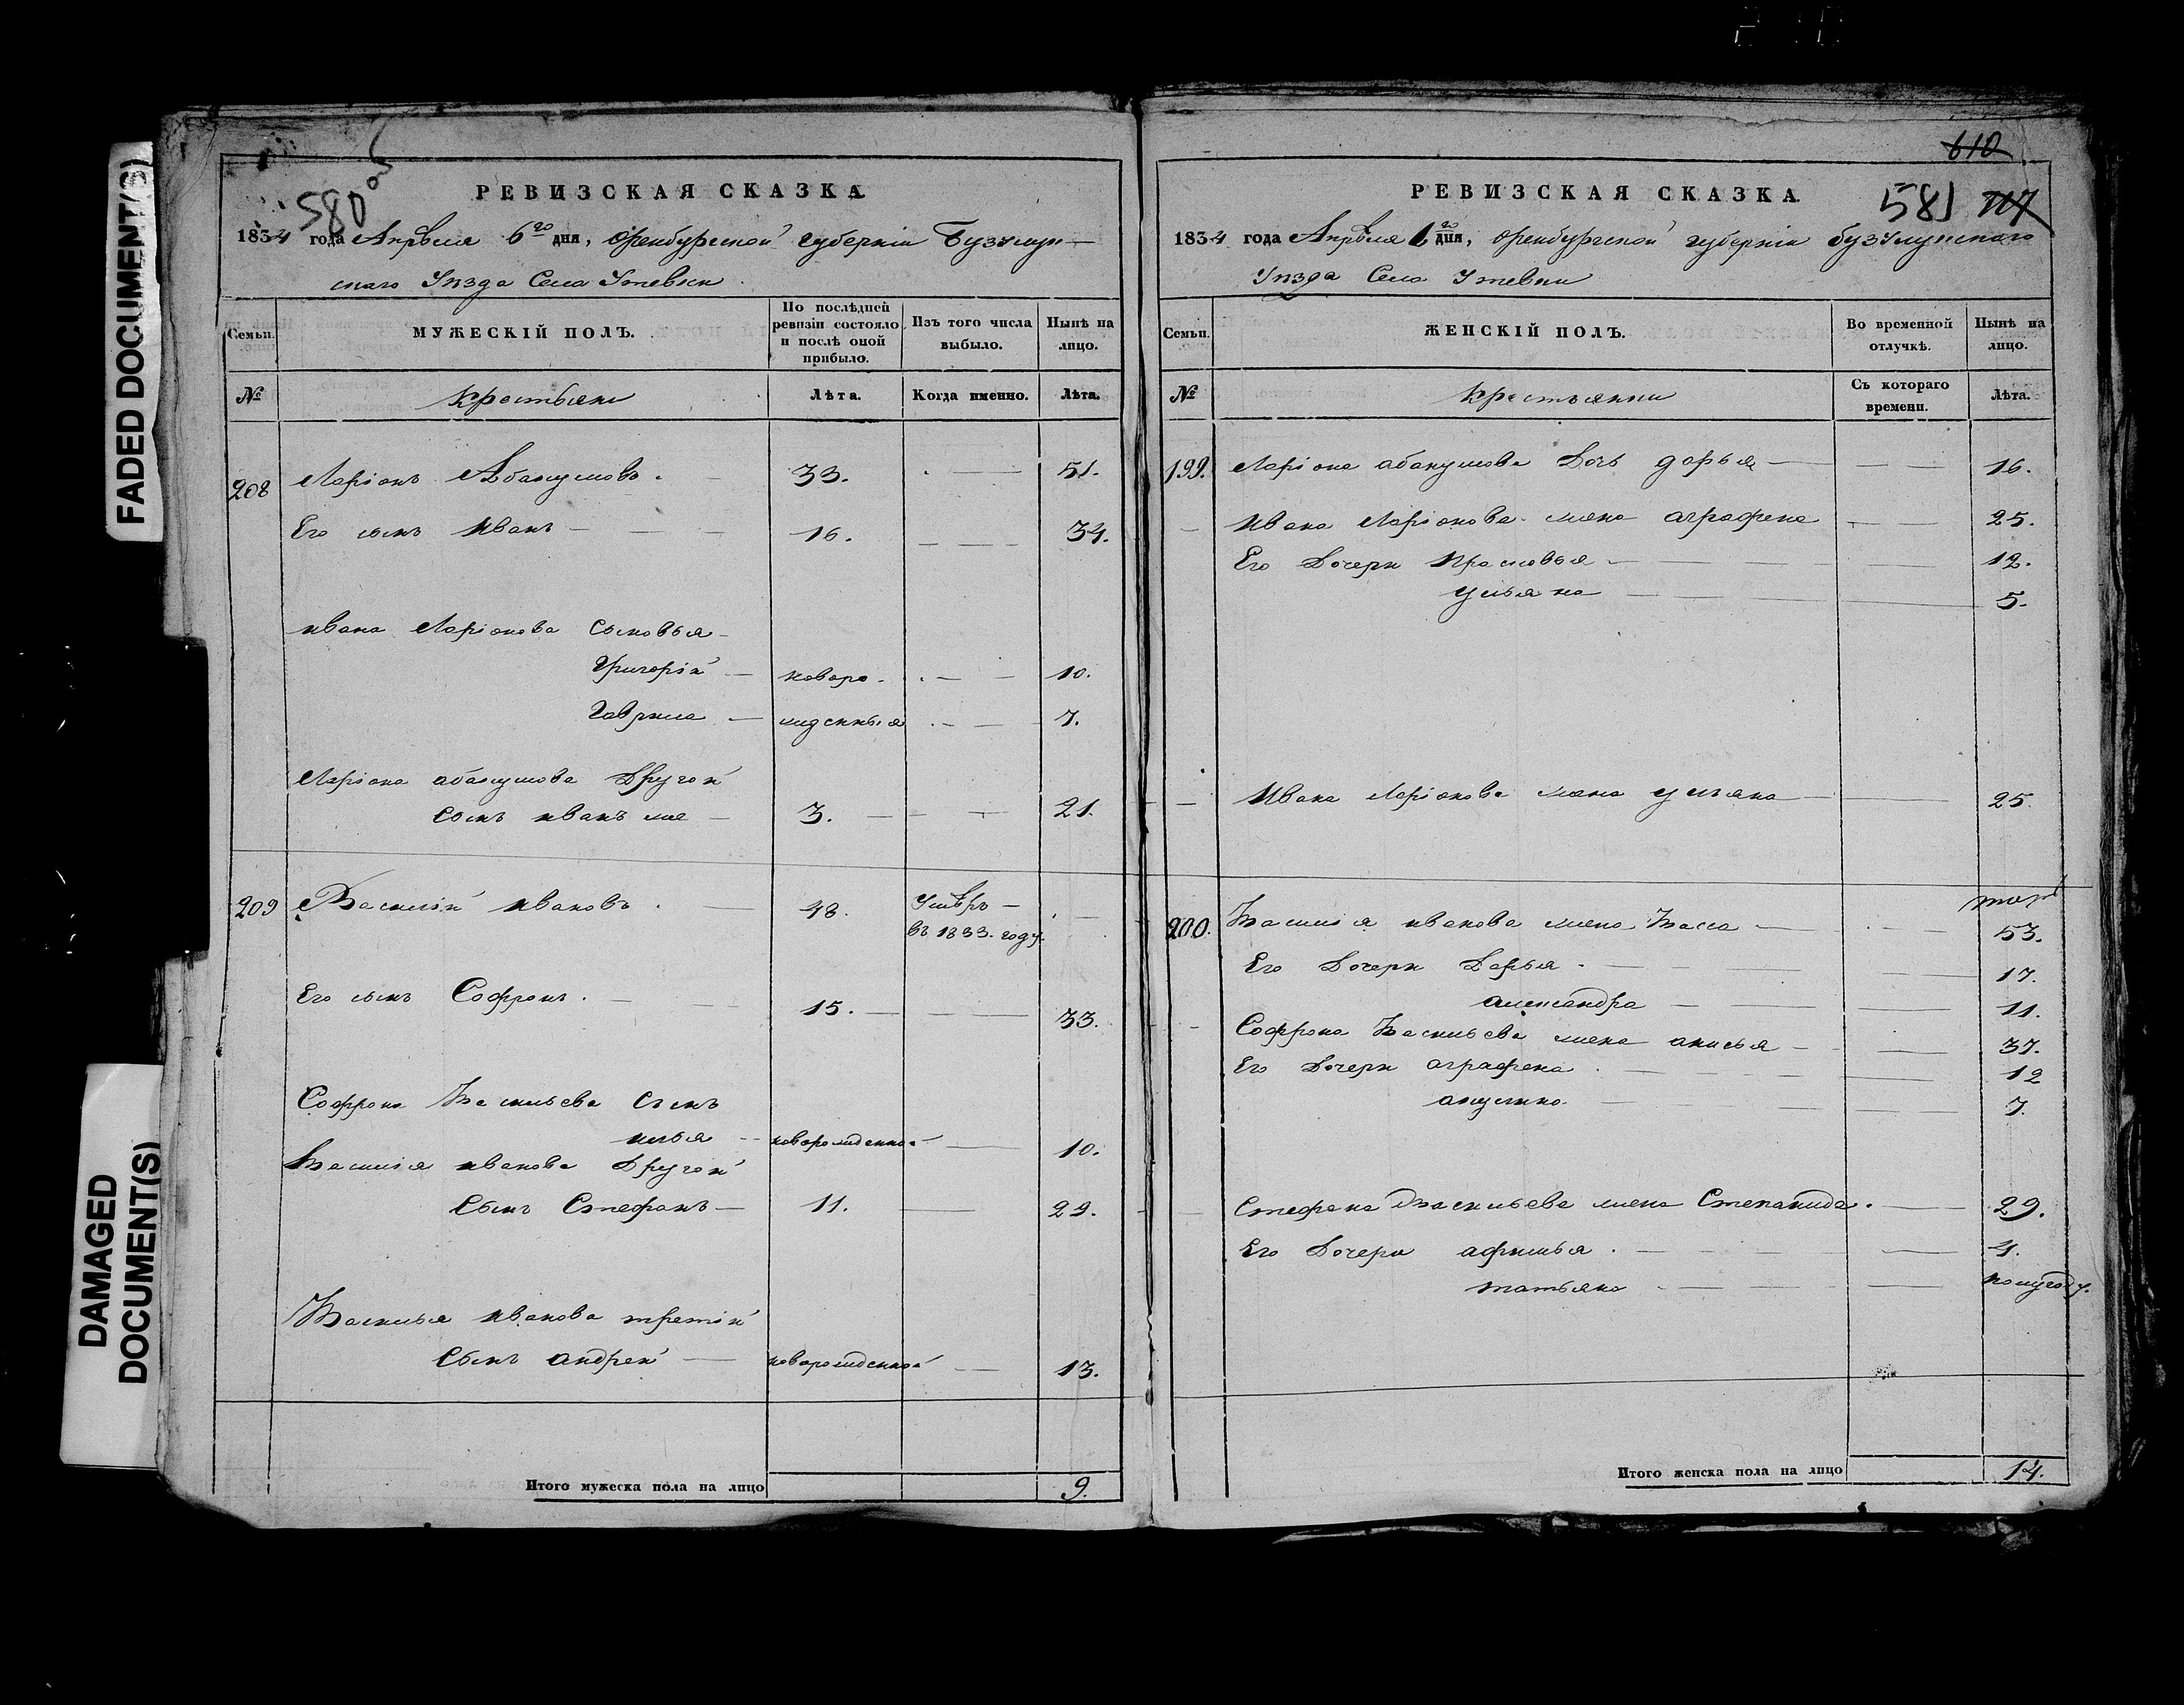 FADED DOCUMENT(S)
DAMAGED
DOCUMENT(S)
580 об
РЕВИЗСКАЯ СКАЗКА
1834 года Апрѣля 6го дня, Оренбургской губерніи Бузулук-
скаго Уѣзда Села Утевки
Семьи.
МУЖЕСКІЙ ПОЛЪ.
По послѣдней
ревизіи состояло
и послѣ оной
прибыло.
Изъ того числа
выбыло.
Нынѣ на
лицо.
№
Крестьяне
Лѣта.
Когда именно.
Лѣта.
208 Ларіонъ Абакумовъ. 33. 51.
Его сынъ Иванъ 16. 34.
ивана Ларіонова сыновья
Григорій новоро- 10.
Гаврила жденныя 7.
Ларіона абакумова Другой
сынъ иванъ же 3. 21.
209 Василій ивановъ. 48. Умѣръ
въ 1833. году.
Его сынъ Софронъ. 15. 33.
Софрона Васильева сынъ
илья новорожденной 10.
Василія иванова Другой
сынъ Стефанъ 11. 29.
Василья иванова третій
сынъ андрей новорожденной 13.
Итого мужеска пола на лицо 9.
610
581 717
РЕВИЗСКАЯ СКАЗКА
1834 года Апрѣля 6го дня, оренбургской губерніи бузулукскаго
Уѣзда Села Утевки
Семьи.
ЖЕНСКІЙ ПОЛЪ.
Во временной
отлучкѣ.
Нынѣ на
лицо.
№
Крестьянки
Съ котораго
времени.
Лѣта.
199. Ларіона абакумова Дочь дарья 16.
Ивана Ларіонова жена аграфена 25.
Его Дочери Прасковья 12.
ульяна 5.
Ивана Ларіонова жена ульяна 25.
200. Василія иванова жена Васса 53.
Его Дочери Дарья 17.
александра 11.
Софрона Васильева жена анисья 37.
Его Дочери аграфена 12
акулина 7.
Стефана Васильева жена Степанида. 29.
Его Дочери афимья 4.
татьяна полугоду.
Итого женска пола на лицо 14.